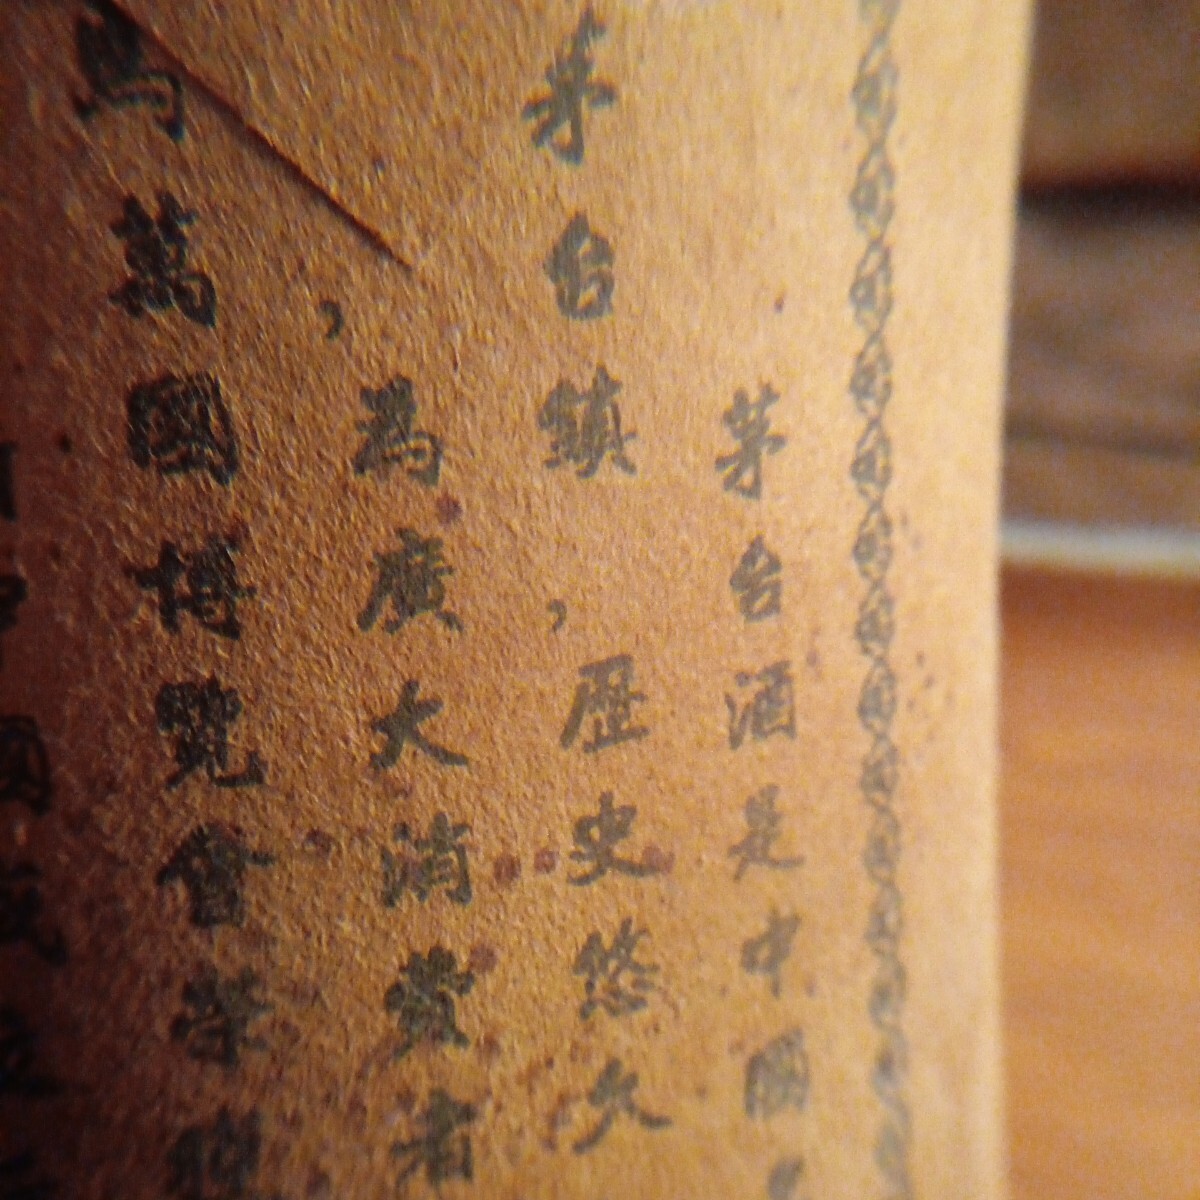 茅台酒是中國
茅台鎮，歷史悠久
，為廣大消費者
馬萬國博覽會榮